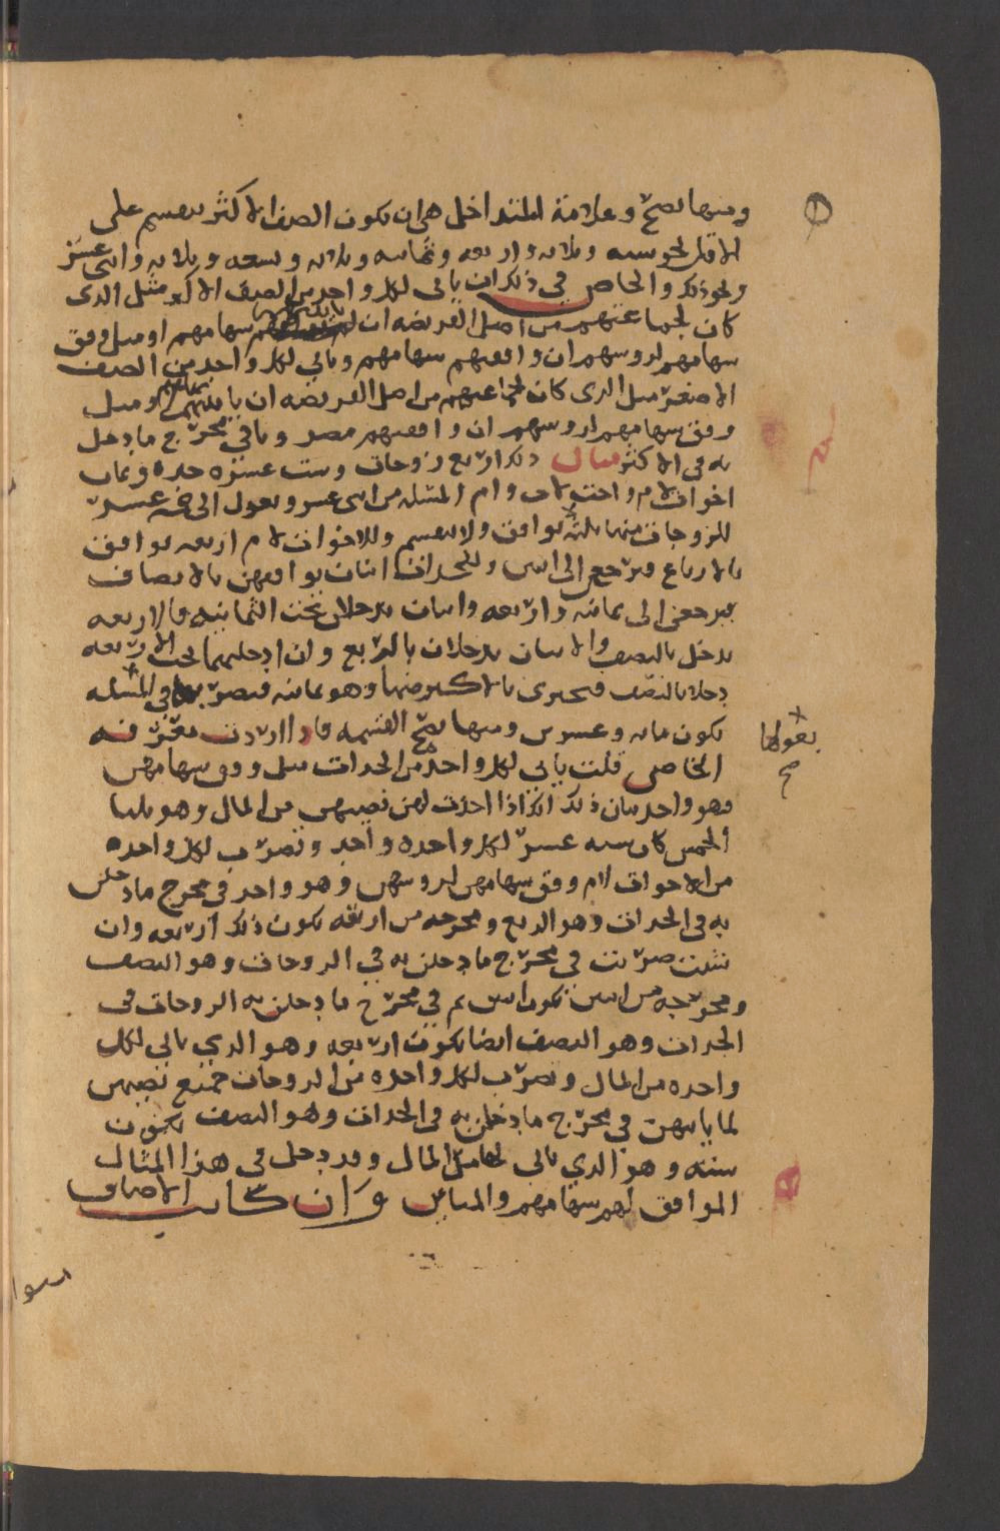 ومنها تصح وعلامة المتداخل هي ان يكون الصنف الاكثر ينقسم على
الاقل نحو ستة وثلاثة واربعة وثمانية وثلاثة وتسعة وثلاثة واثنى عشر
ونحو ذلك والخاص في ذلك ان ياتي لكل واحد من الصنف الاكبر مثل الذي
كان لجماعتهم من اصل الفريضة ان باينتهم سهامهم او مثل وفق
سهامهم لروسهم ان وافقتهم سهامهم وياتي لكل واحد من الصنف
الاصغر مثل الذي كان لجماعتهم من اصل الفريضة ان باينتهم سهامهم او مثل
وفق سهامهم لروسهم ان وافقتهم مضروبا في مخرج ما دخل
به في الاكثر مثال ذلك اربع زوجات وست عشرة جدة وثمان
اخوات لام واختين لاب وام المسئلة من اثنى عشر وتعول الى خمسة عشر
للزوجات منها ثلثة توافق ولا ينقسم وللاخوات لام اربعة توافق
بالارباع فترجع الى اثنين وللجدات اثنان توافقهن بالانصاف
فيرجعن الى ثمانية واربعة واثنان يدخلان تحت الثمانية فالاربعة
تدخل بالنصف والاثنان يدخلان بالربع وان ادخلتهما تحت الاربعة
دخلا بالنصف فيجتزى بالاكثر منها وهو ثمانية فتضربها في المسئلة
بعولها صح
يكون مائة وعشرين ومنها تصح القسمة فاذا اردت معرفة
الخاص قلت ياتي لكل واحدة من الجدات مثل وفق سهامهن
وهو واحد بيان ذلك انك اذا اخذت لهن نصيبهن من المال وهو ثلثا
الخمس كان ستة عشر لكل واحدة واحد وتضرب لكل واحدة
من الاخوات لام وفق سهامهن لروسهن وهو واحد في مخرج ما دخلن
به في الجدات وهو الربع ومخرجه من اربعة يكون ذلك اربعة وان
شئت ضربت في مخرج ما دخلن به في الزوجات وهو النصف
ومخرجه من اثنين يكون اثنين ثم في مخرج ما دخلن به الزوجات في
الجدات وهو النصف ايضا يكون اربعة وهو الذي ياتي لكل
واحدة من المال وتضرب لكل واحدة من الزوجات جميع نصيبهن
لما باينهن في مخرج ما دخلن به في الجدات وهو النصف يكون
ستة وهو الذي ياتي لها من المال وقد دخل في هذا المثال
الموافق لهم سهامهم والمباين وان كانت الاصناف